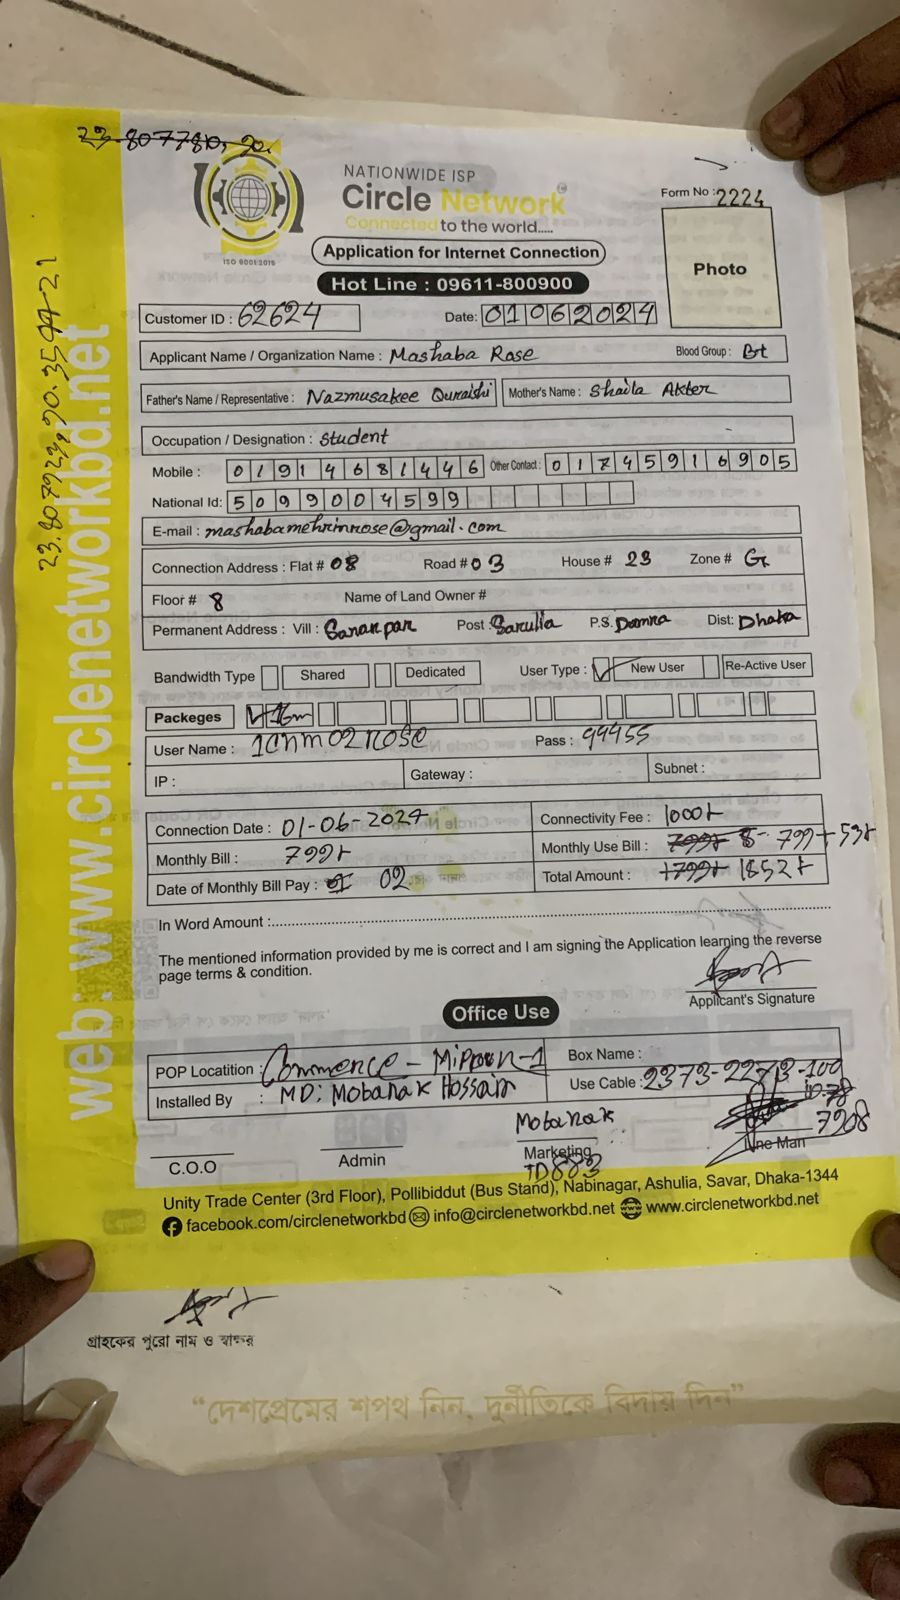 23.807780, 90.
NATIONWIDE ISP
Circle Network
Connected to the world.....
ISO 9001:2015
Application for Internet Connection
Hot Line : 09611-800900
Form No : 2224
Photo
Customer ID : 62624 Date: 01062024
Applicant Name / Organization Name : Mashaba Rose Blood Group : B+
Father's Name / Representative : Nazmusakee Quraishi Mother's Name : Shaila Akter
Occupation / Designation : Student
Mobile : 01914681446 Other Contact : 01745916905
National Id: 5099004599
E-mail : mashabamehrinrose@gmail.com
Connection Address : Flat # 08 Road # 03 House # 23 Zone # G
Floor # 8 Name of Land Owner #
Permanent Address : Vill : Post : Sarulia P.S. Demra Dist: Dhaka
Bandwidth Type Shared Dedicated User Type : New User Re-Active User
Packeges 16m
User Name : 1cnm02rose Pass : 99455
IP : Gateway : Subnet :
Connection Date : 01-06-2024 Connectivity Fee : 1000৳
Monthly Bill : 799৳ Monthly Use Bill : 799+53৳
Date of Monthly Bill Pay : 02 Total Amount : 1852৳
In Word Amount :
The mentioned information provided by me is correct and I am signing the Application learning the reverse
page terms & condition.
Applicant's Signature
Office Use
POP Locatition : Commerce - Mirpur-1 Box Name :
Installed By : MD: Mobarak Hossain Use Cable : 2373-2273-100
7908
Mobarak
C.O.O Admin Marketing Line Man
ID883
Unity Trade Center (3rd Floor), Pollibiddut (Bus Stand), Nabinagar, Ashulia, Savar, Dhaka-1344
facebook.com/circlenetworkbd info@circlenetworkbd.net www.circlenetworkbd.net
web: www.circlenetworkbd.net
23.807923, 90.354421
গ্রাহকের পুরো নাম ও স্বাক্ষর
“দেশপ্রেমের শপথ নিন, দুর্নীতিকে বিদায় দিন”